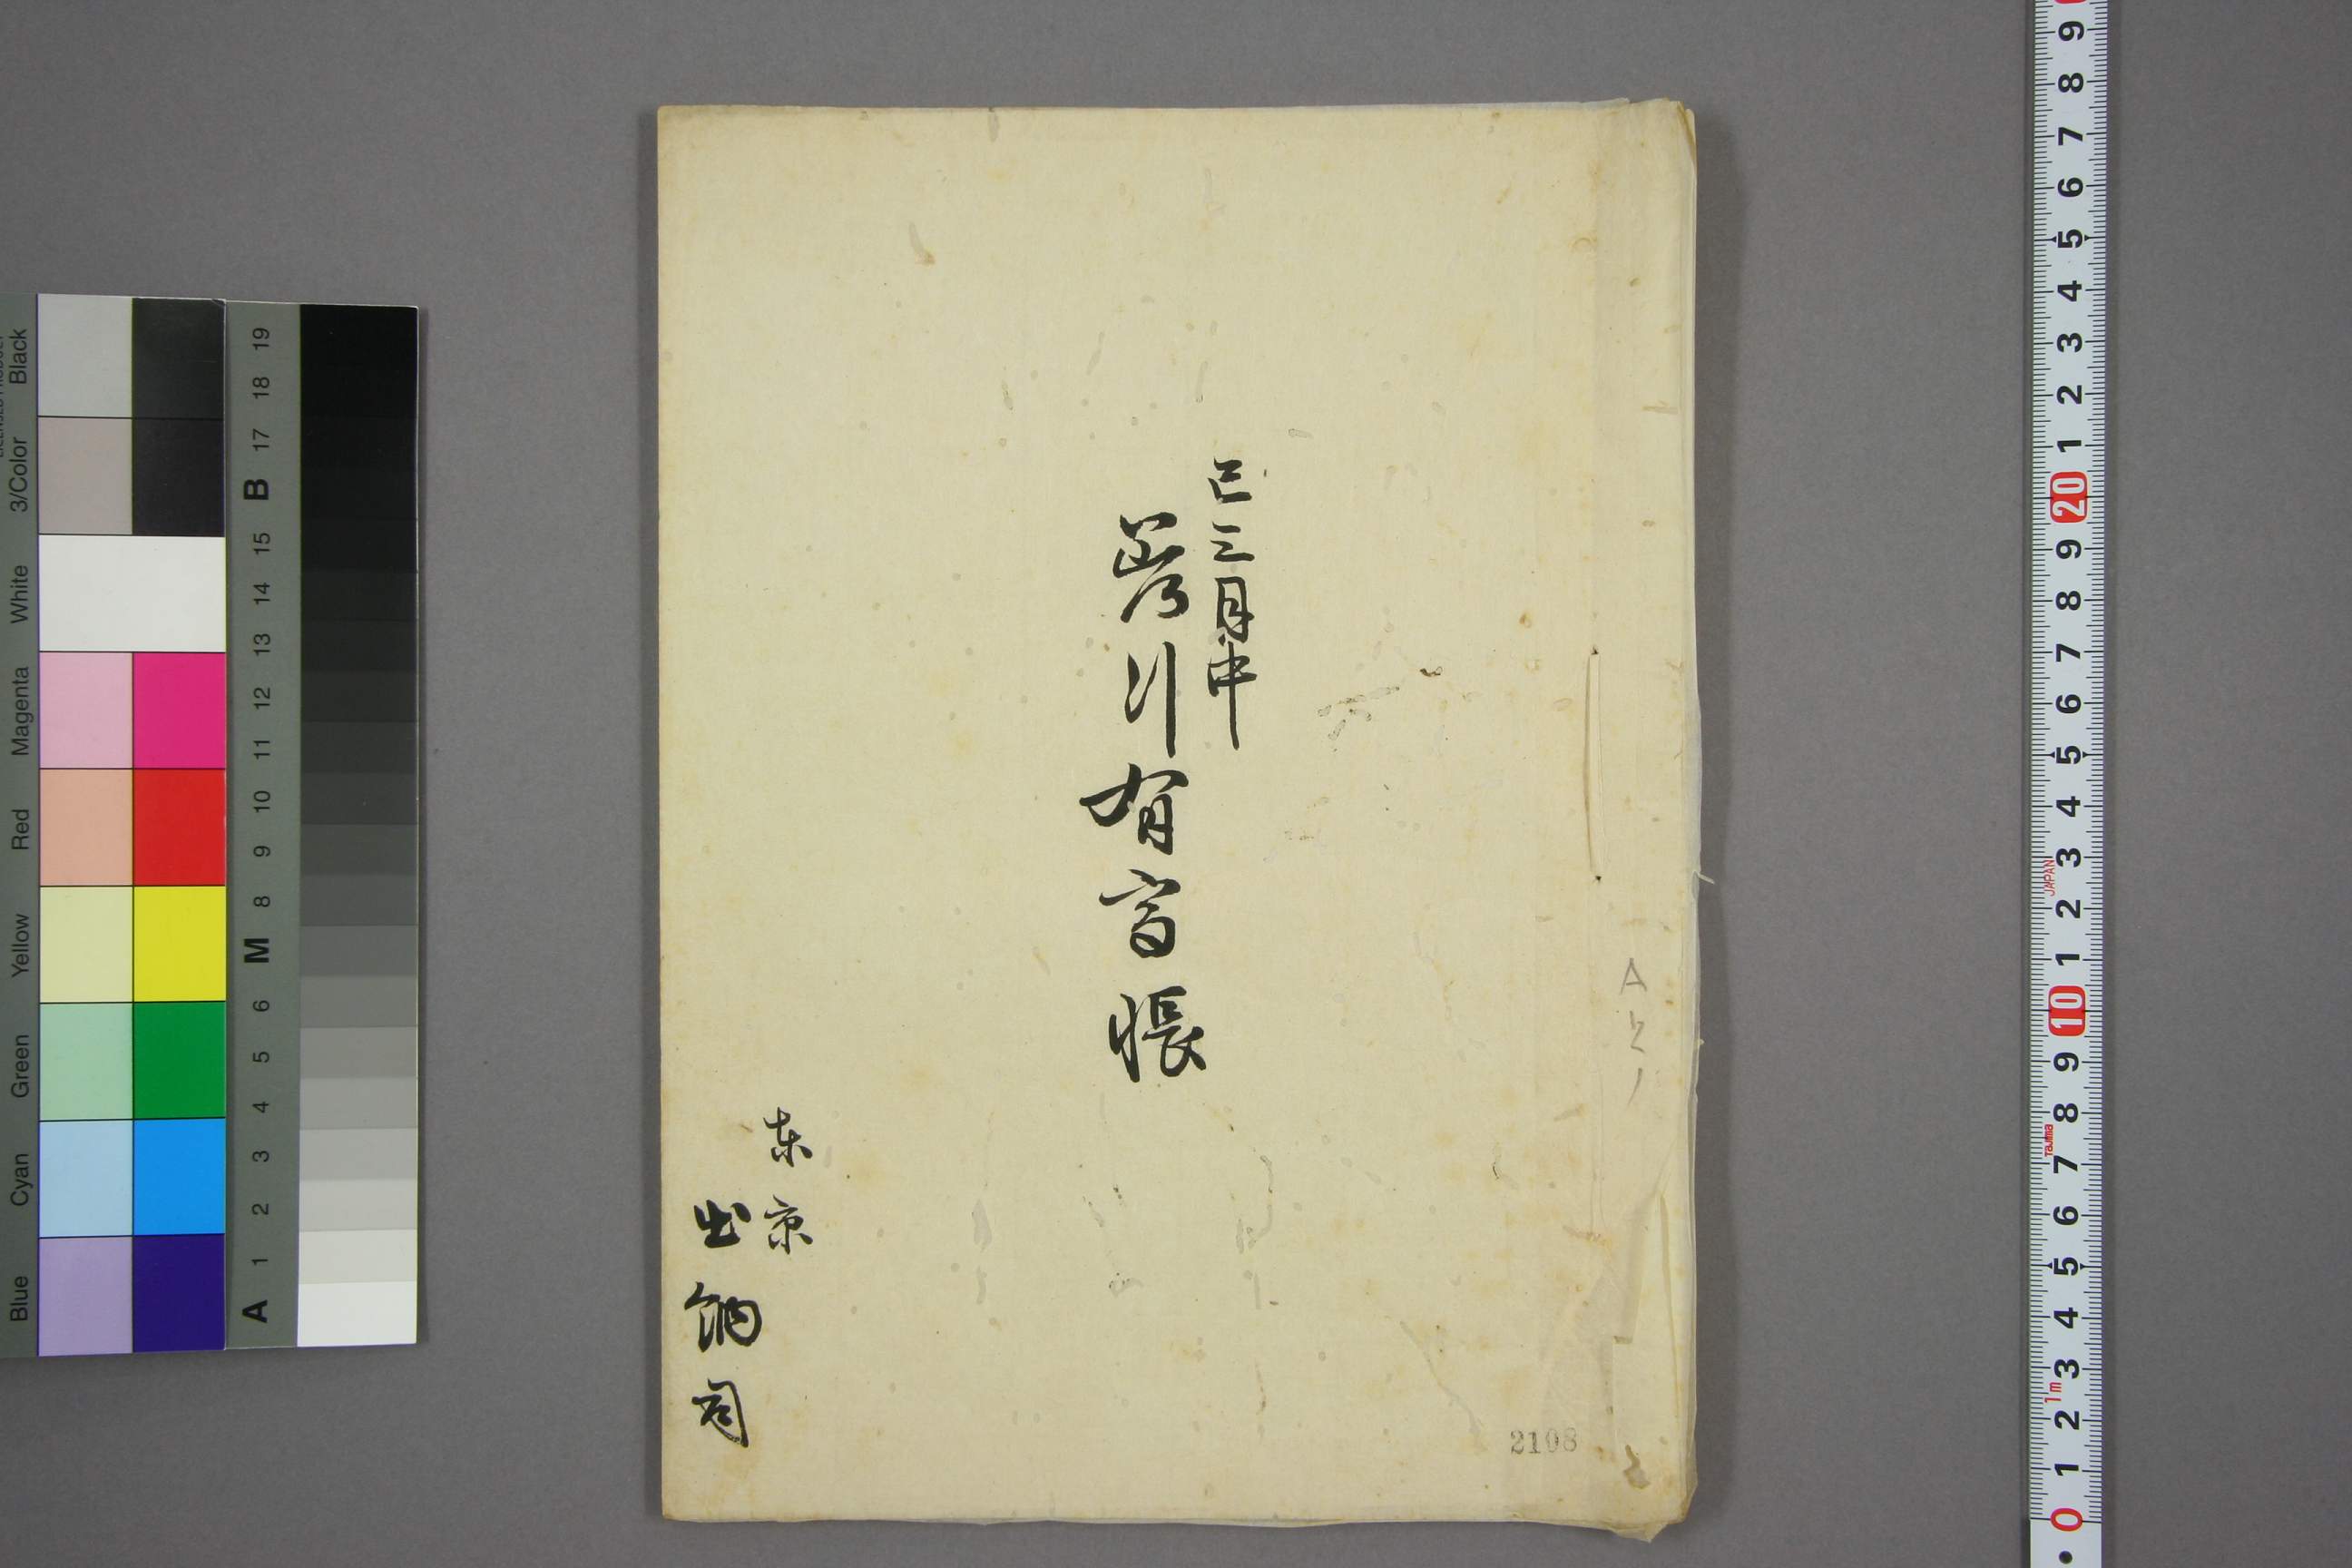 巳三月中
有高帳
東京
出納司
2108
Black
3/Color
White
Magenta
Red
Yellow
Green
Cyan
Blue
A 1 2 3 4 5 6 M 8 9 10 11 12 13 14 15 B 17 18 19
0 1 2 3 4 5 6 7 8 9 10 1 2 3 4 5 6 7 8 9 20 1 2 3 4 5 6 7 8 9
1m
Tajima
JAPAN